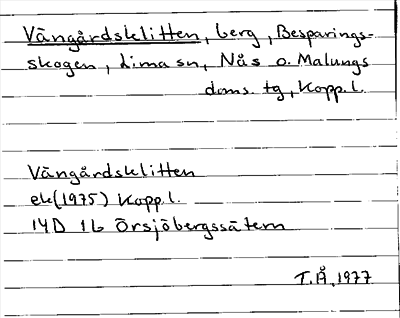 Vängårdsklitten, berg, Besparings-
skogen, Lima sn, Nås o. Malungs
doms. tg, Kopp. l.
Vängårdsklitten
ek (1975) Kopp. l.
14D 1b Örsjöbergssätern
T.Å. 1977